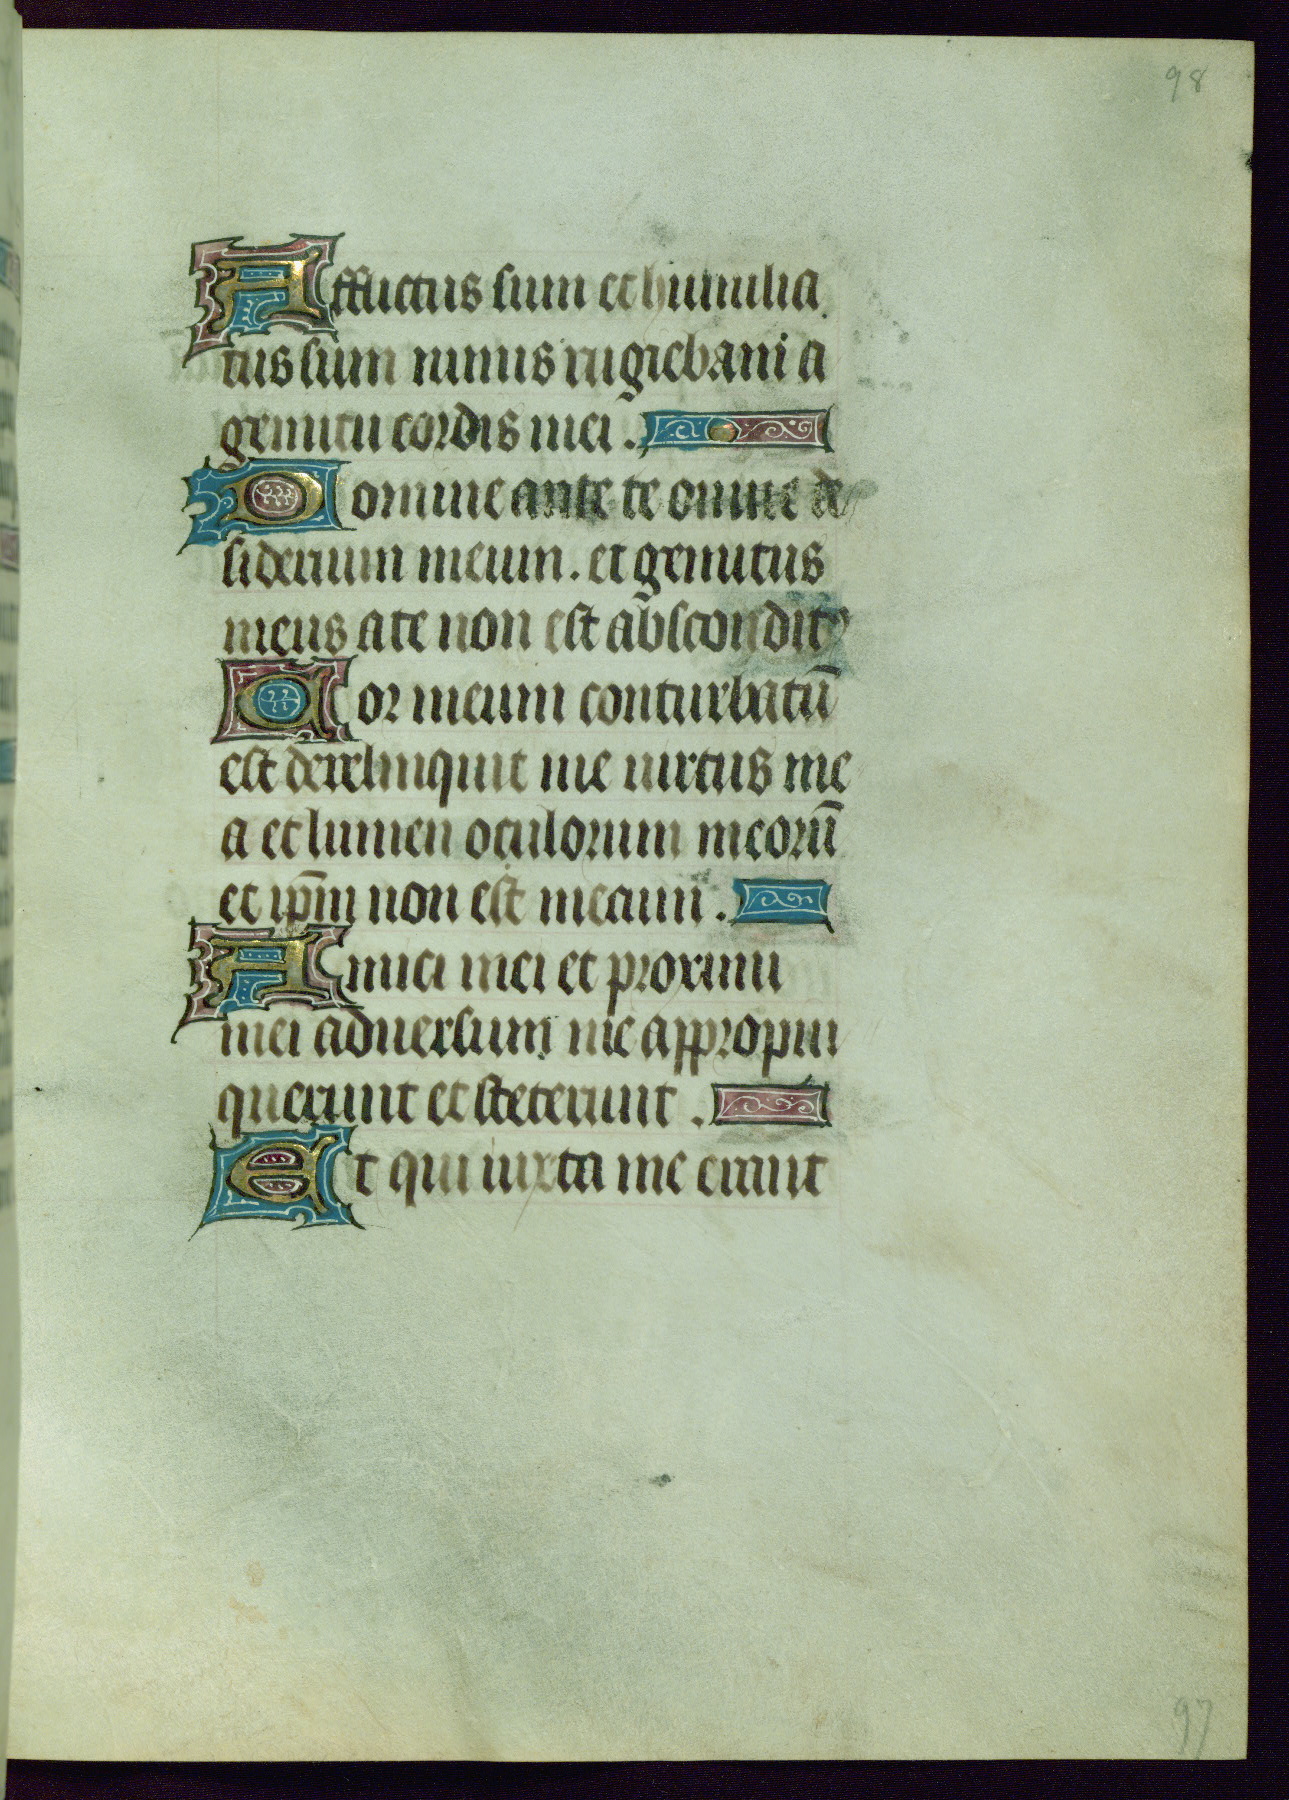 98
Afflictus sum et humilia
tus sum nimis rugiebam a
gemitu cordis mei .
Domine ante te omne de
siderium meum . et gemitus
meus a te non est absconditꝰ
Cor meum conturbatū
est derelinquit me uirtus me
a et lumen oculorum meorū
et ip̄m non est mecum .
Amici mei et proximi
mei aduersum me appropin
querunt et steterunt .
Et qui iuxta me erant
97